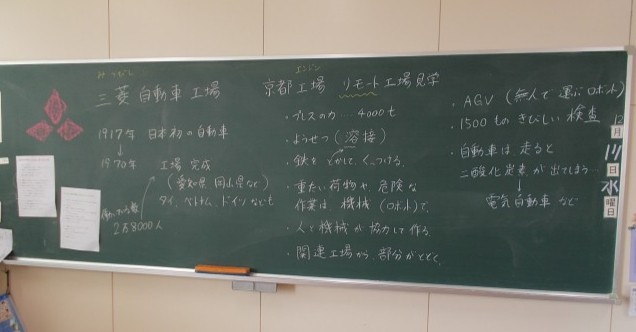 みつびし
三菱自動車工場
1917年 日本初の自動車
↓
1970年 工場完成
(愛知県 岡山県など)
タイ、ベトナム、ドイツなども
2万8000人
エンジン
京都工場 リモート工場見学
・プレスの力 … 4000t
・ようせつ(溶接)
鉄をとかして、くっつける。
・重たい荷物や、危険な
作業は機械(ロボット)で。
・人と機械が協力して作る。
・関連工場から、部分がとどく。
・AGV(無人で運ぶロボット)
・1500ものきびしい検査
・自動車は走ると
二酸化炭素が出てしまう…
↓
電気自動車など
12
月
日
水
曜
日